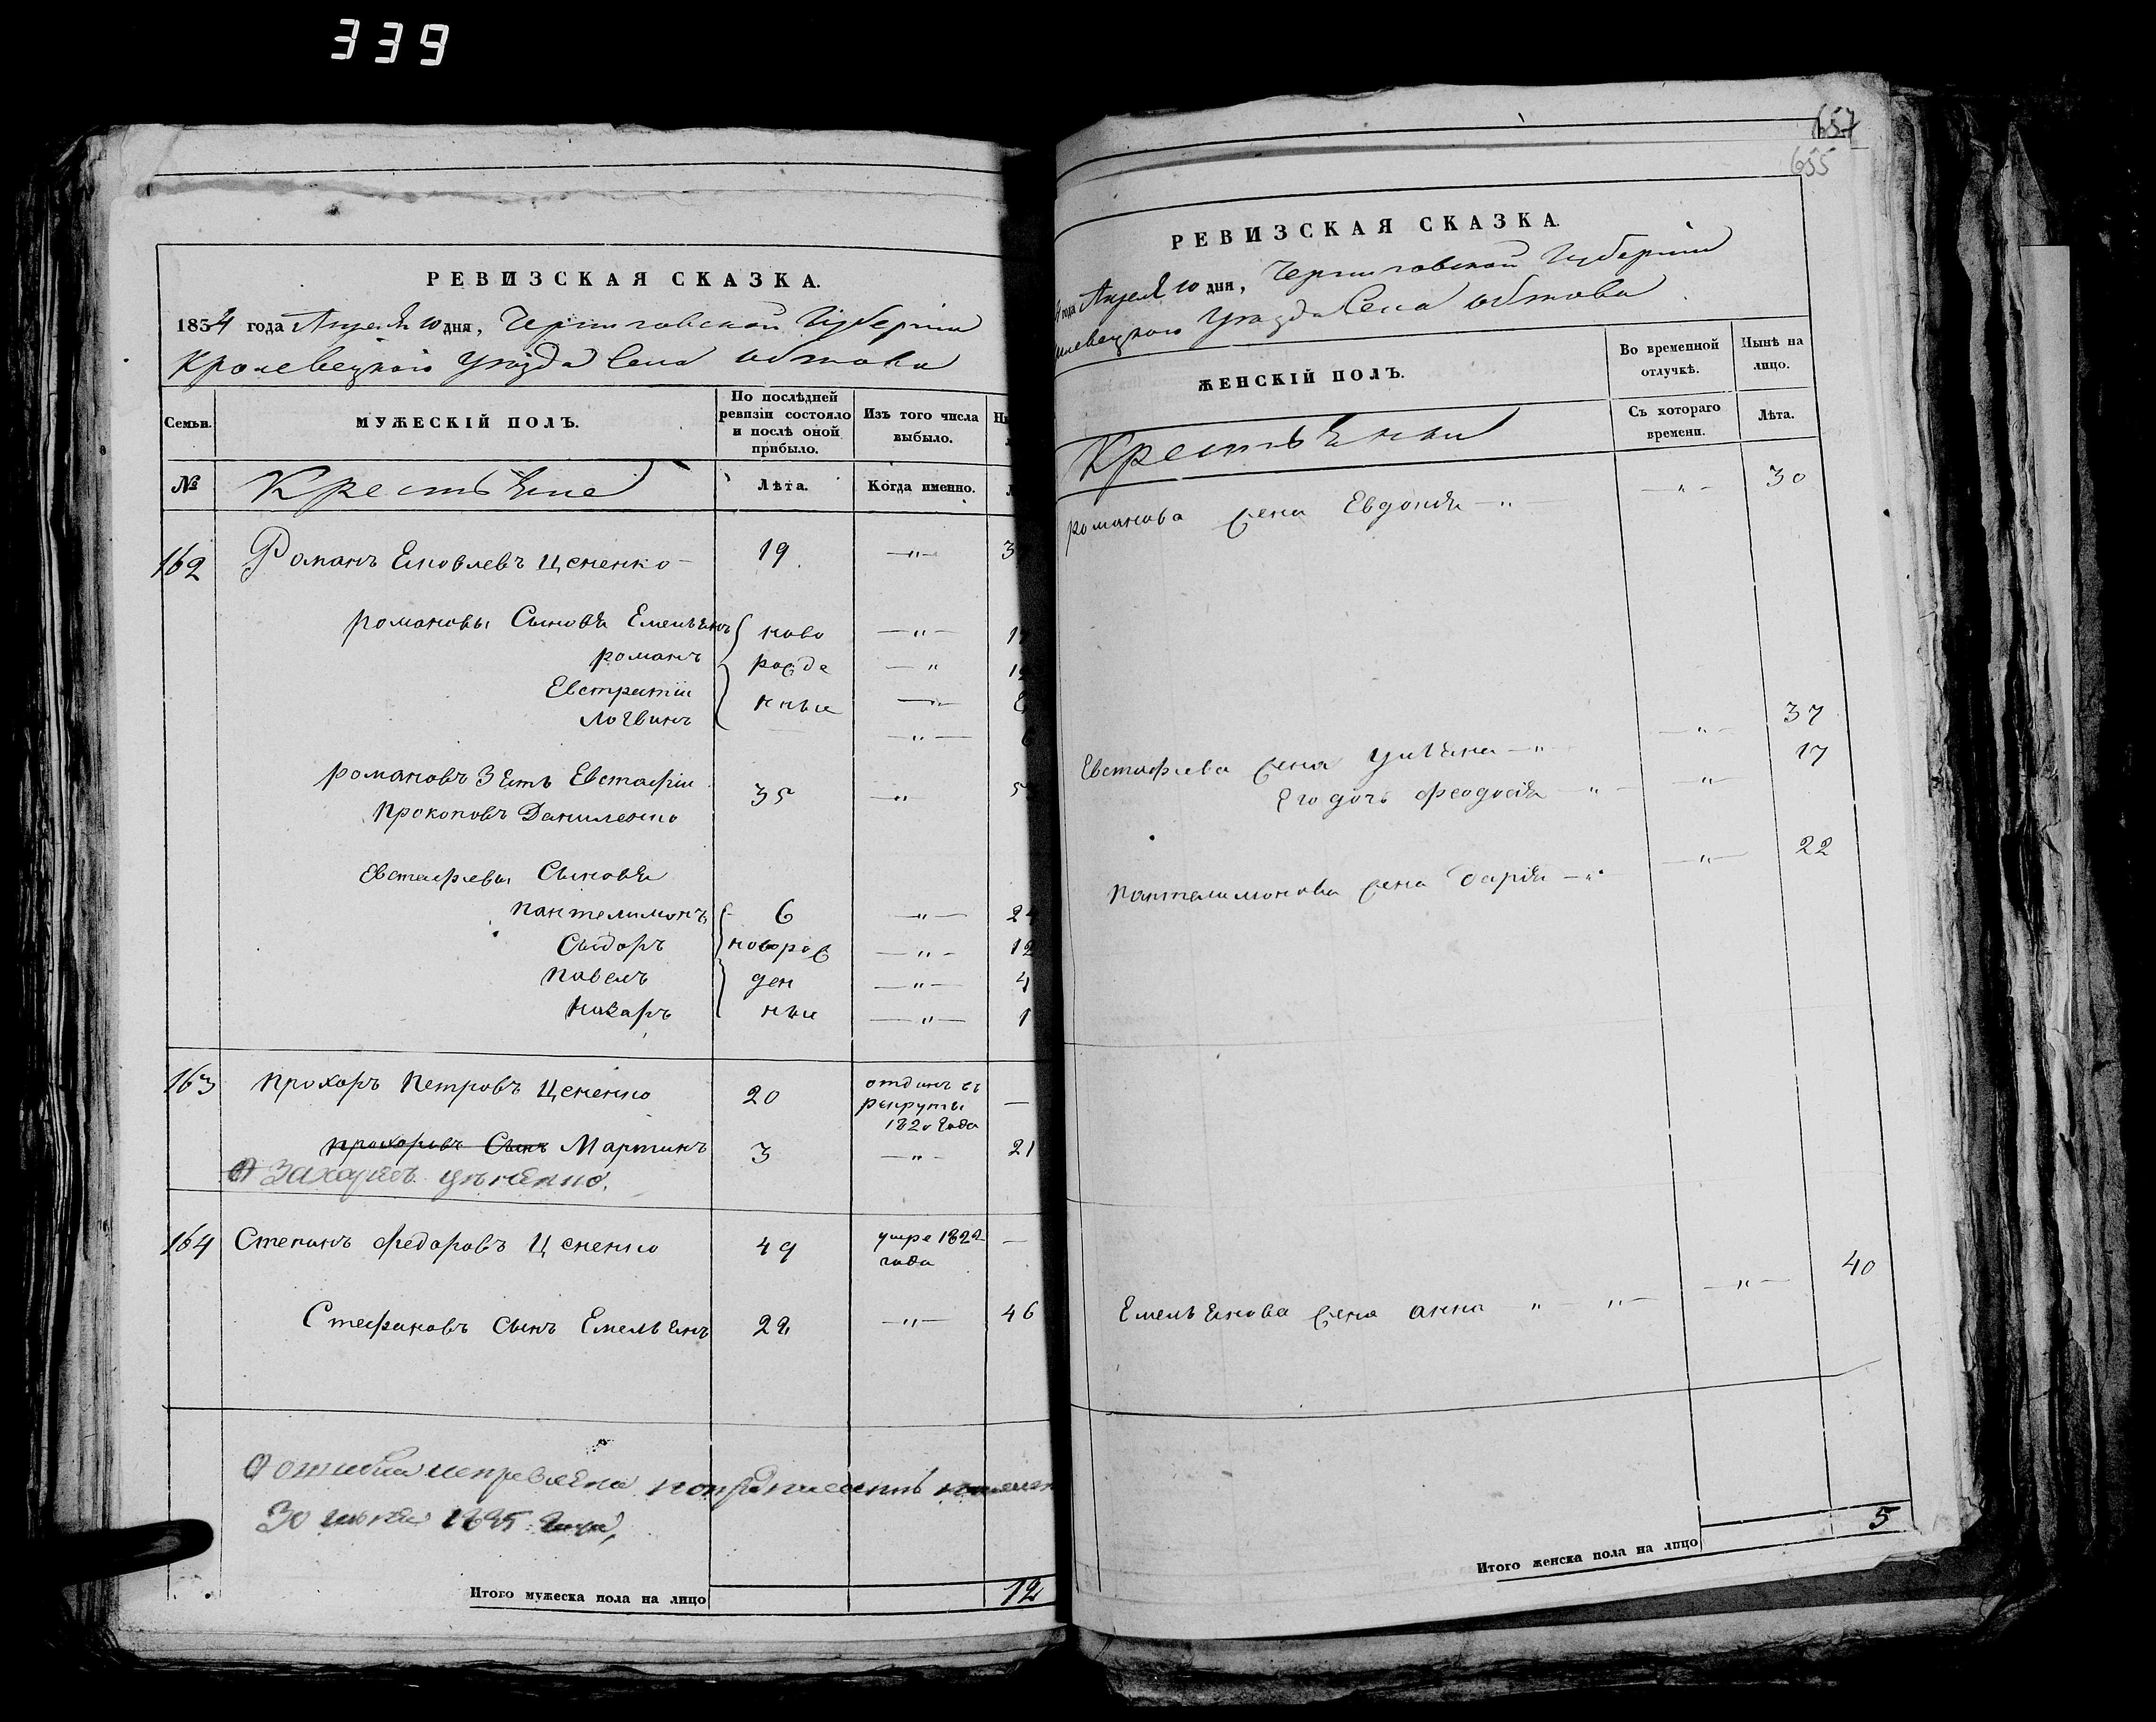 339
РЕВИЗСКАЯ СКАЗКА.
1854 года Апреля 10 дня, Черниговской Губернии
Кролевецкого Уезда Села Обтова
Семьи.
МУЖЕСКІЙ ПОЛЪ.
По послѣдней ревизіи состояло и послѣ оной прибыло.
Изъ того числа выбыло.
№
Крестьяне
Лѣта.
Когда именно.
162 Романъ Яковлевъ Цененко 19 —"—
романовы Сыновя Емельянъ ново —"—
романъ рожде —"
Евстратiи нные —"—
Логвинъ —"—
романовъ Зять Евстафiи 35 —"—
Прокоповъ Даниленко
Евстафiевы Сыновя
Пантелимонъ 6 —"— 24
Сыдоръ новорож —"— 12
Павелъ ден —"— 4
Назаръ ные —"— 1
163 Прохоръ Петровъ Цененко 20 отданъ въ рекруты 1820 года —
прохоровъ Сынъ Мартинъ 3 —"— 21
Захарiевъ Цененко.
164 Степанъ Федоровъ Цененко 49 умре 1822 года —
Стефановъ Сынъ Емельянъ 22 —"— 46
ошибка исправлена
30
Итого мужеска пола на лицо 12
657
655
РЕВИЗСКАЯ СКАЗКА.
года Апреля 10 дня, Черниговской Губернии
Уезда Села Обтова
ЖЕНСКІЙ ПОЛЪ.
Во временной отлучкѣ.
Нынѣ на лицо.
Крестьянки
Съ котораго времени.
Лѣта.
романова жена Евдокiя —"— —"— 30
Евстафiева жена Улiяна —"— —"— 37
Его дочь Феодосiя —"— —"— 17
Пантелимонова жена Дарiя —"— —"— 22
Емельянова жена Анна " "— —"— 40
Итого женска пола на лицо 5